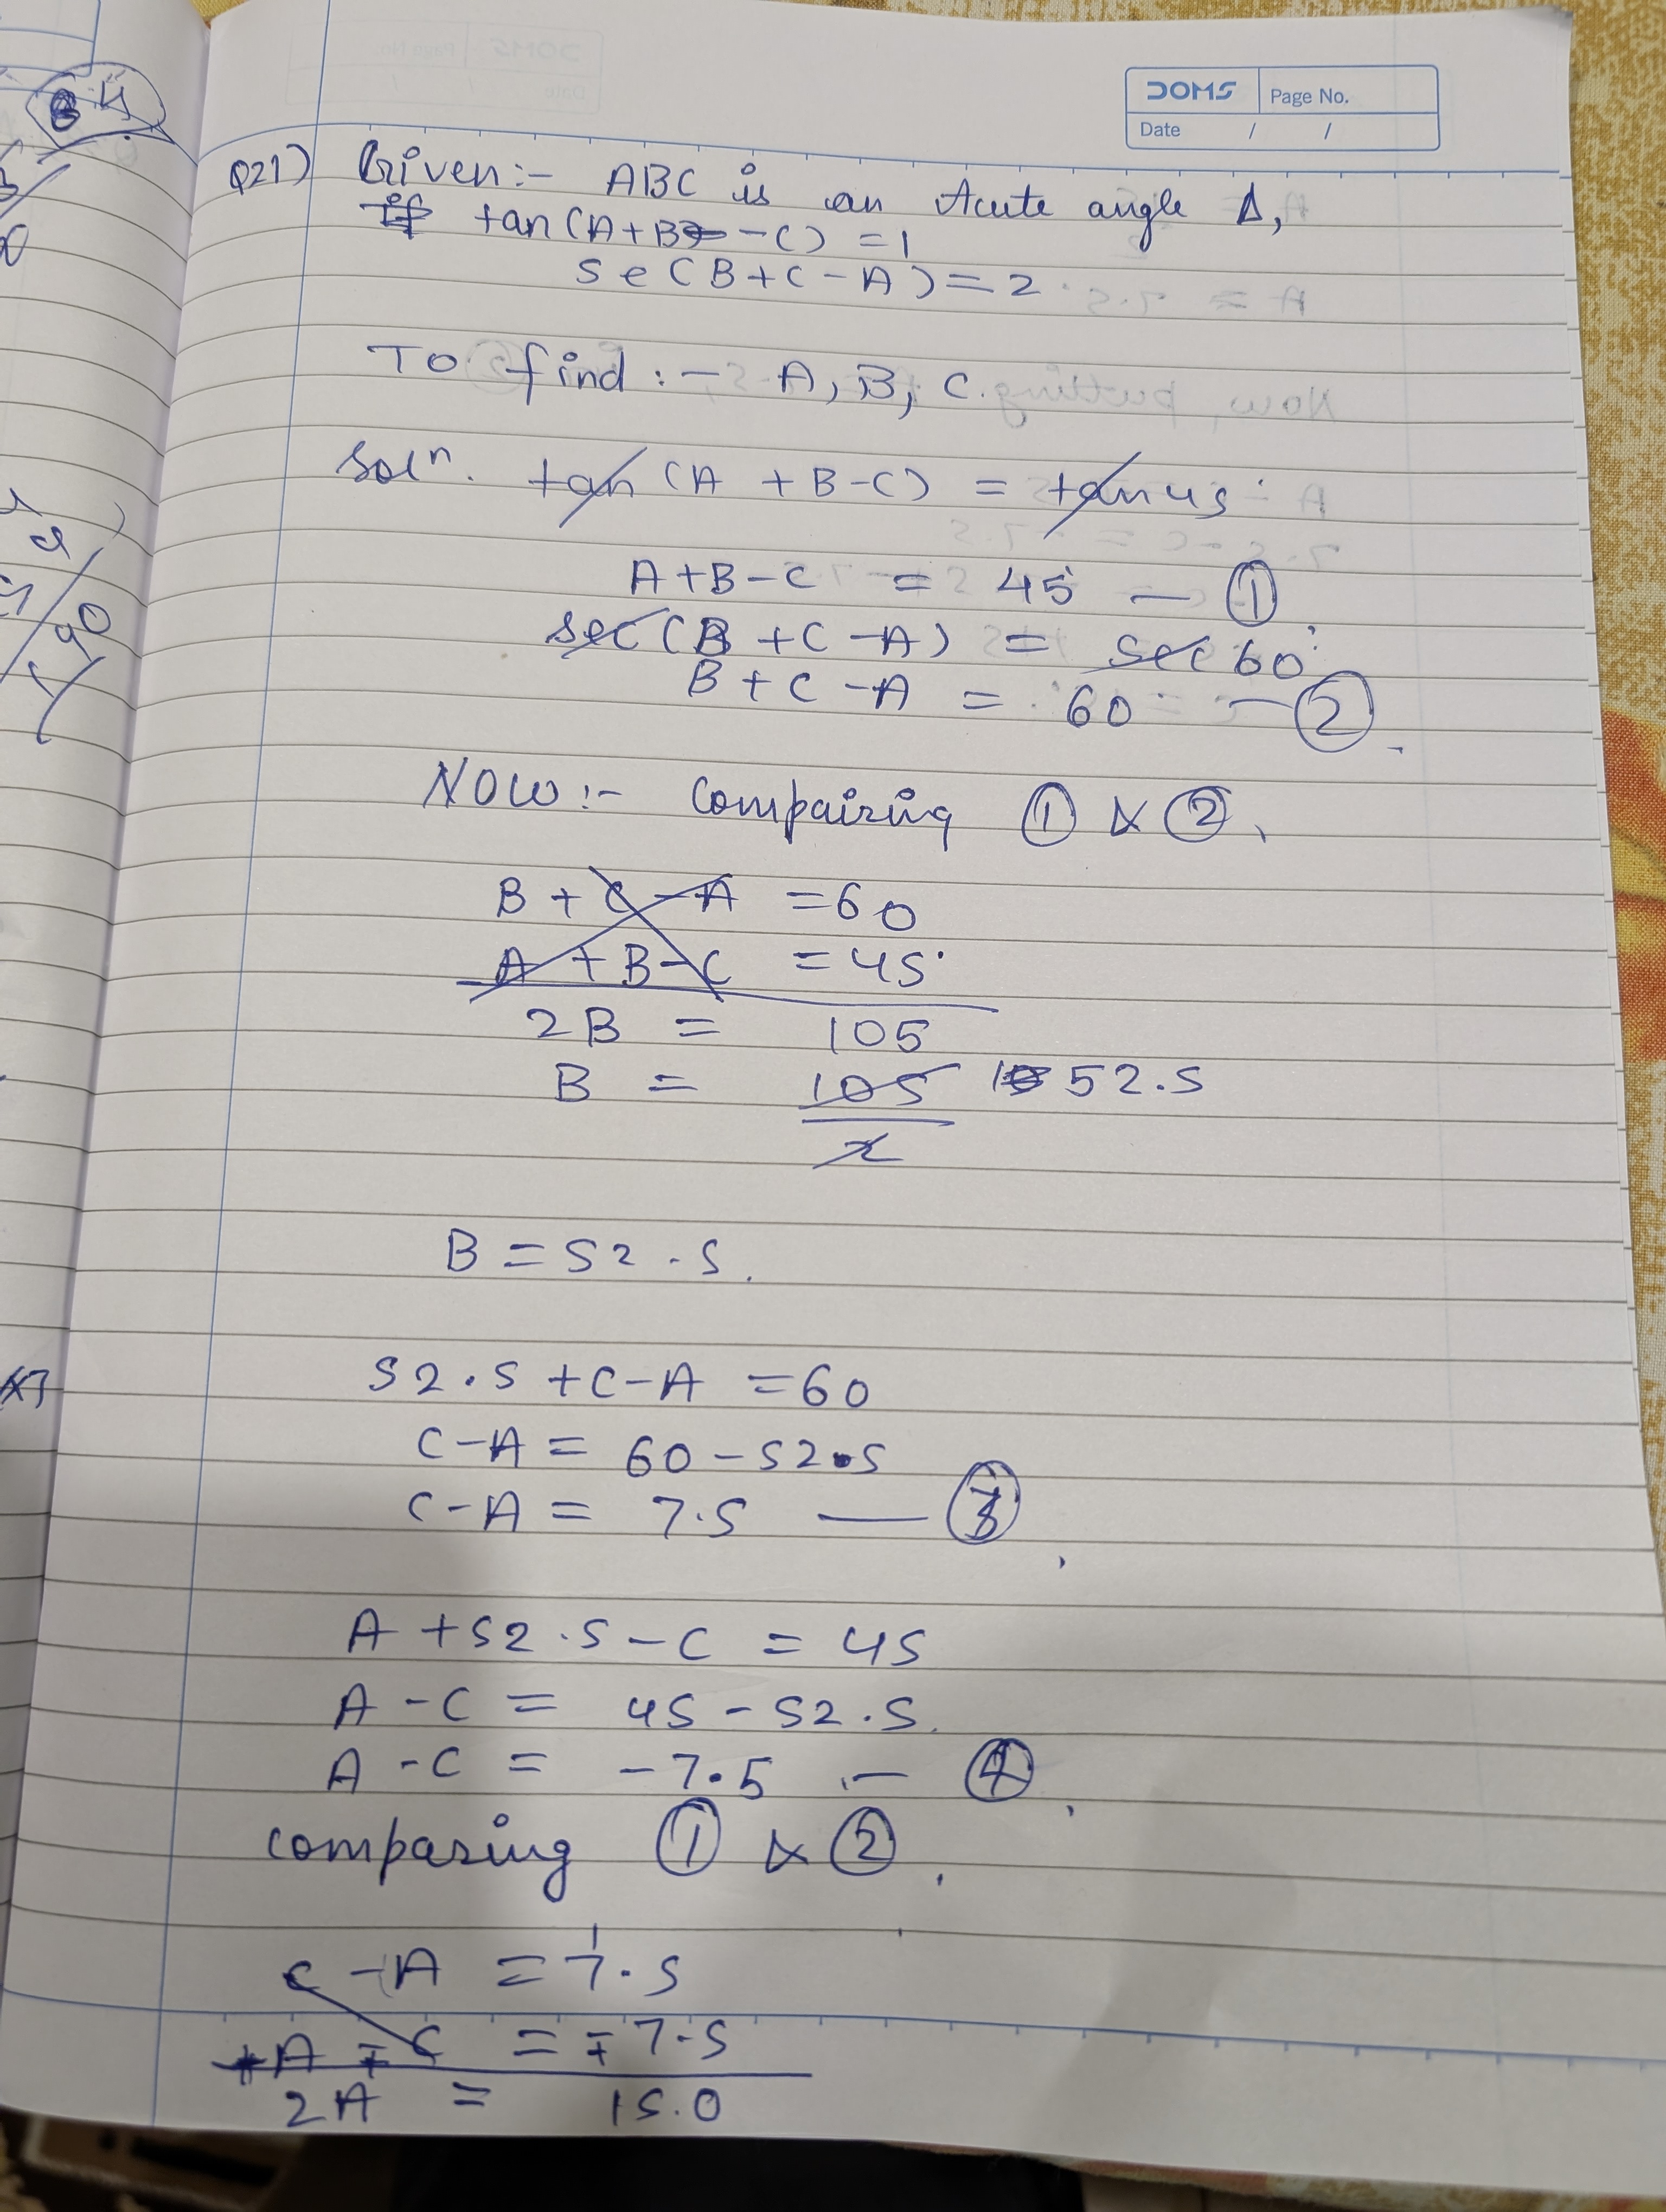 DOMS
Page No.
Date / /
Q21) Given:- ABC is an Acute angle Δ,
If tan (A+B-C) = 1
sec (B+C-A) = 2
To find :- A, B, C.
Solⁿ. tan (A + B-C) = tan 45°
A+B-C = 45° — ①
sec (B + C -A) = sec 60°
B + C -A = 60 — ②
NOW :- Compairing ① & ②,
B + C - A = 60
A + B - C = 45°
2B = 105
B = 105 52.5
2
B = 52.5.
52.5 + C-A = 60
C-A = 60 - 52.5
C-A = 7.5 — ③
A + 52.5 - C = 45
A - C = 45 - 52.5.
A - C = -7.5 — ④
comparing ① & ②,
C - A = 7.5
+A ∓ C = ∓ 7.5
2A = 15.0